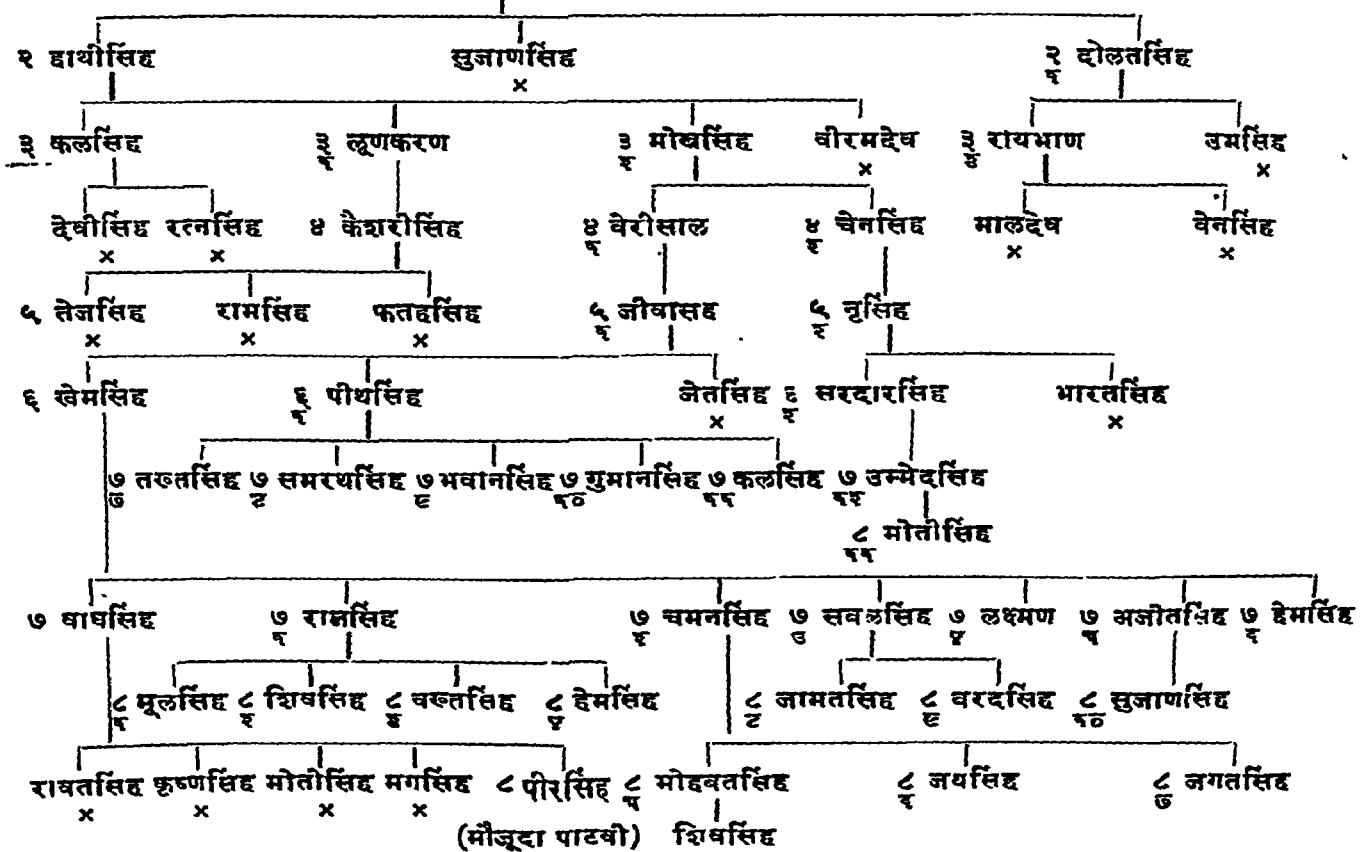 २ हाथीसिंह सुजाणसिंह २/१ दोलतसिंह
×
३ कलसिंह ३/१ लूणकरण ३/२ मोखसिंह वीरमदेव ३/४ रायभाण उमसिंह
× ×
देवीसिंह रत्नसिंह ४ केशरीसिंह ४/१ वेरीसाल ४/२ चेनसिंह मालदेव वेनसिंह
× × × ×
५ तेजसिंह रामसिंह फतहसिंह ५/१ जीवासह ५/२ नृसिंह
× × ×
६ खेमसिंह ६/१ पीथसिंह जेतसिंह ६/२ सरदारसिंह भारतसिंह
× ×
७/७ तख्तसिंह ७/८ समरथसिंह ७/९ भवानसिंह ७/१० गुमानसिंह ७/११ कलसिंह ७/१२ उम्मेदसिंह
८/११ मोतीसिंह
७ वाघसिंह ७/१ राजसिंह ७/२ चमनसिंह ७/३ सवलसिंह ७/४ लक्ष्मण ७/५ अजीतसिंह ७/६ हेमसिंह
८/१ मूलसिंह ८/२ शिवसिंह ८/३ वख्तसिंह ८/४ हेमसिंह ८/८ जामतसिंह ८/९ वरदसिंह ८/१० सुजाणसिंह
रावतसिंह कृष्णसिंह मोतीसिंह मगसिंह ८ पीरसिंह ८/५ मोहवतसिंह ८/६ जयसिंह ८/७ जगतसिंह
× × × ×
(मौजूदा पाटवी) शिवसिंह